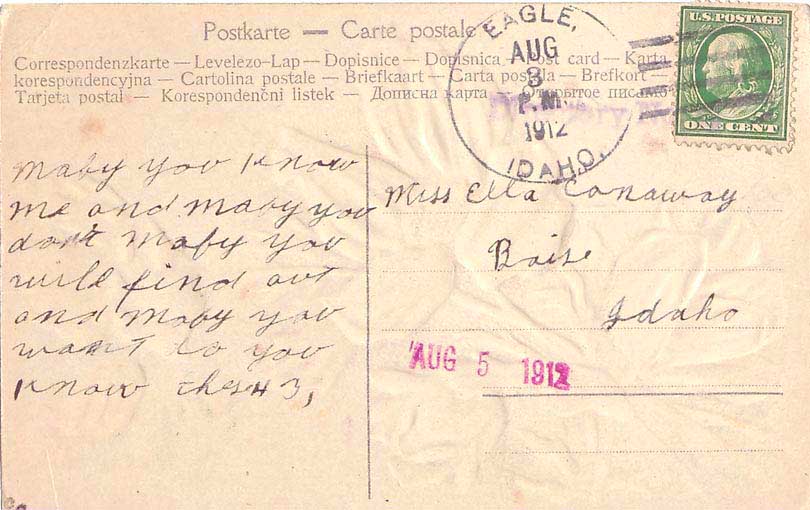 Postkarte — Carte postale
Correspondenzkarte — Levelezo-Lap — Dopisnice — Dopisnica Post card — Karta
korespondencyjna — Cartolina postale — Briefkaart — Carta postala — Brefkort —
Tarjeta postal — Korespondenční listek — Дописна карта — Открытое письмо
EAGLE,
AUG
3
P.M.
1912
IDAHO.
U.S. POSTAGE
ONE CENT
maby you know
me and maby you
don't maby you
will find out
and maby you
want do you
know
Miss Ella Conaway
Boise
Idaho
AUG 5 1912